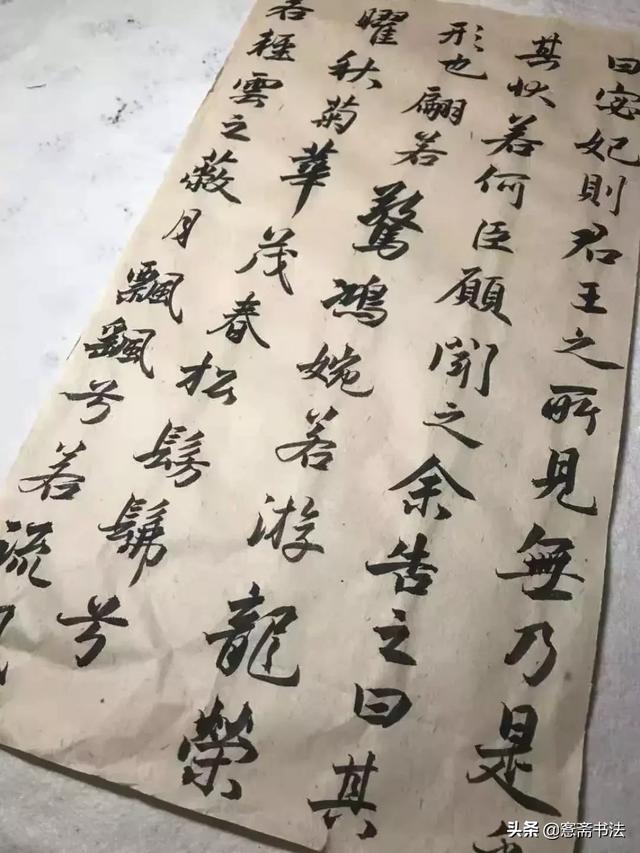 曰宓妃則君王之所見無乃是
其状若何臣願聞之余告之曰其
形也翩若驚鴻婉若游龍榮
曜秋菊華茂春松髣髴兮
若輕雲之蔽月飄飄兮若流
头条@愙斋书法